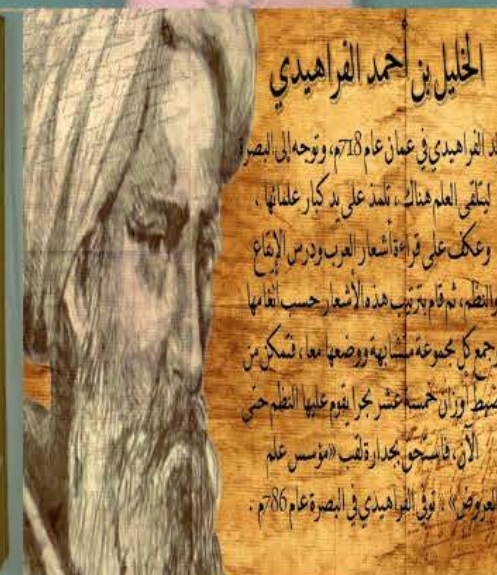 الخليل بن أحمد الفراهيدي
لد الفراهيدي في عمان عام 718م، وتوجه إلى البصرة
ليتلقى العلم هناك، تلمذ على يد كبار علمائها ،
وعكف على قراءة أشعار العرب ودرس الإيقاع
والنظم، ثم قام بترتيب هذه الأشعار حسب أنغامها
وجمع كل مجموعة متشابهة ووضعها معا، فتمكن من
ضبط أوزان خمسة عشر بحرا يقوم عليها النظم حتى
الآن، فاستحق بجدارة لقب «مؤسس علم
العروض» . توفي الفراهيدي في البصرة عام 786م .